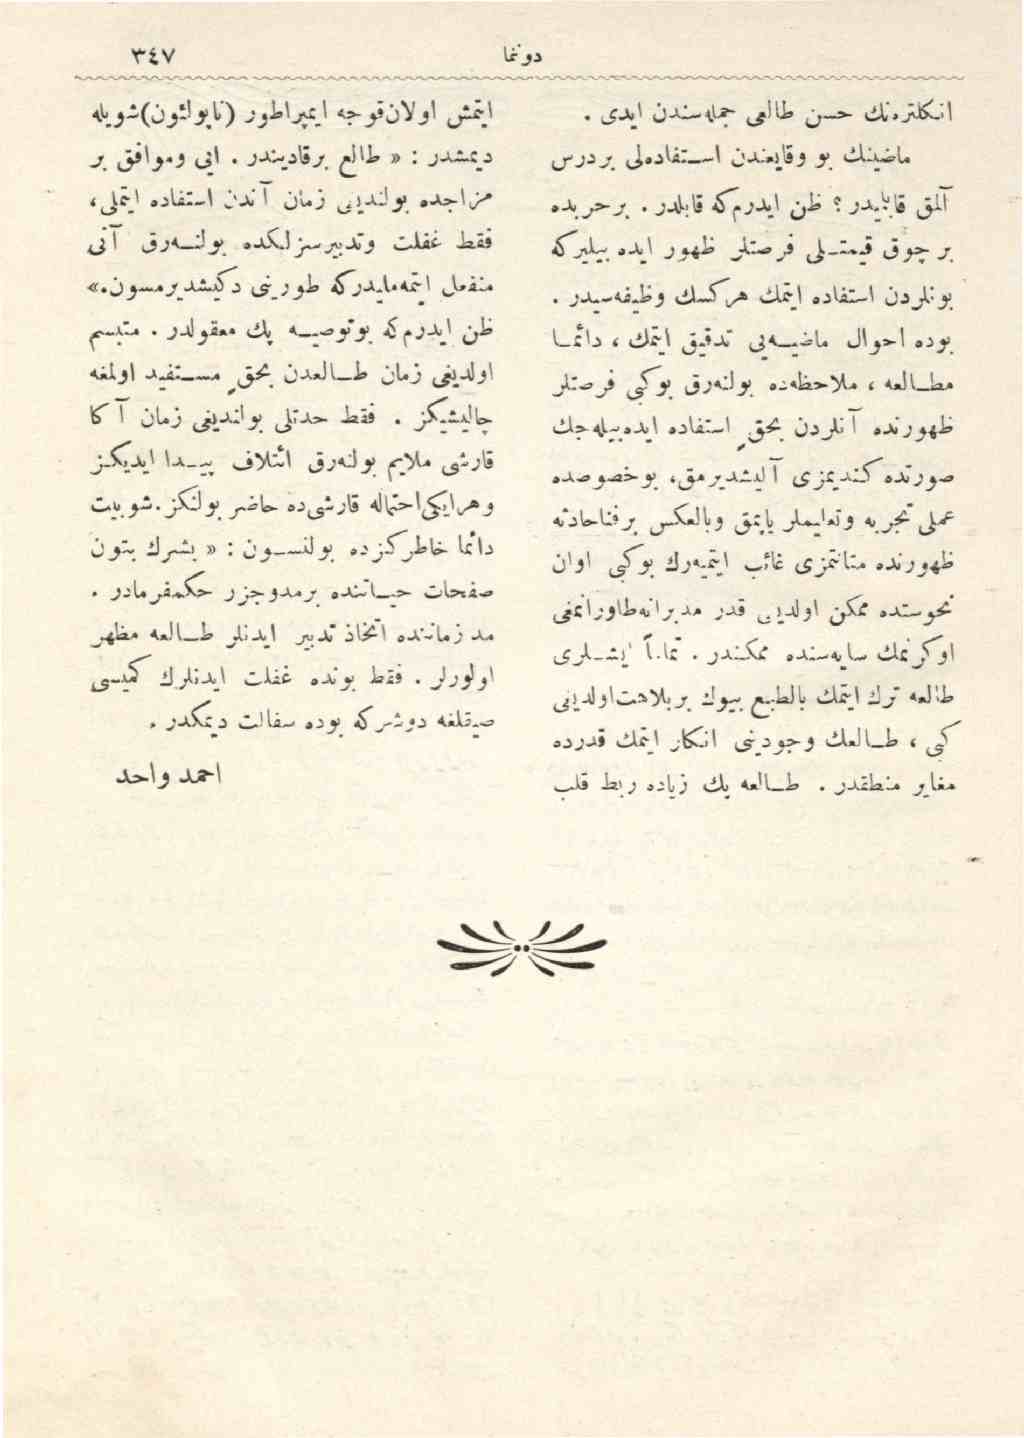 دوننما
٣٤٧
انكلتره‌نك حسن طالعی جمله‌سندن ایدی .
ماضینك بو وقایعندن استفاده‌لی بردرس
آلمق قابلیدر ؟ ظن ایدرم‌كه قابلدر . برحربده
بر چوق قیمتلی فرصتلر ظهور ایده بیلیركه
بونلردن استفاده ایتمك هركسك وظیفه‌سیدر .
بوده احوال ماضیه‌یی تدقیق ایتمك ، دائما
مطالعه ، ملاحظه‌ده بولنه‌رق بوكبی فرصتلر
ظهورنده آنلردن بحقٍ استفاده ایده‌بیله‌جك
صورتده كندیمزی آلیشدیرمق، بوخصوصده
عملی تجربه وتعلیملر یاپمق وبالعكس برفناحادثه
ظهورنده متانتمزی غائب ایتمیه‌رك بوكبی اوان
نحوستده ممكن اولدیغی قدر مدبرانه‌طاورانمغی
اوكرنمك سایه‌سنده ممكندر . تماماً ایشلری
طالعه ترك ایتمك بالطبع بیوك بربلاهت‌اولدیغی
كبی ، طالعك وجودینی انكار ایتمك قدرده
مغایر منطقدر . طالعه پك زیاده ربط قلب
ایتمش اولان‌قوجه ایمپراطور (ناپولئون)شویله
دیمشدر : « طالع برقادیندر . ایی وموافق بر
مزاجده بولندیغی زمان آندن استفاده ایتملی،
فقط غفلت وتدبیرسزلكده بولنه‌رق آنی
منفعل ایتمه‌مایدركه طورینی دكیشدیرمسون.»
ظن ایدرم‌كه بوتوصیه پك معقولدر . متبسم
اولدیغی زمان طالعدن بحقٍ مستفید اولمغه
چالیشیكز . فقط حدتلی بولندیغی زمان آكا
قارشی ملایم بولنه‌رق ائتلاف پیدا ایدیكز
وهرایكی‌احتماله قارشی‌ده حاضر بولنكز.شوبیت
دائما خاطركزده بولنسون : « بشرك بتون
صفحات حیاتنده برمدوجزر حكمفرمادر .
مد زماننده اتخاذ تدبیر ایدنلر طالعه مظهر
اولورلر . فقط بونده غفلت ایدنلرك كمیسی
صیغلغه دوشركه بوده سفالت دیمكدر .
احمد واحد